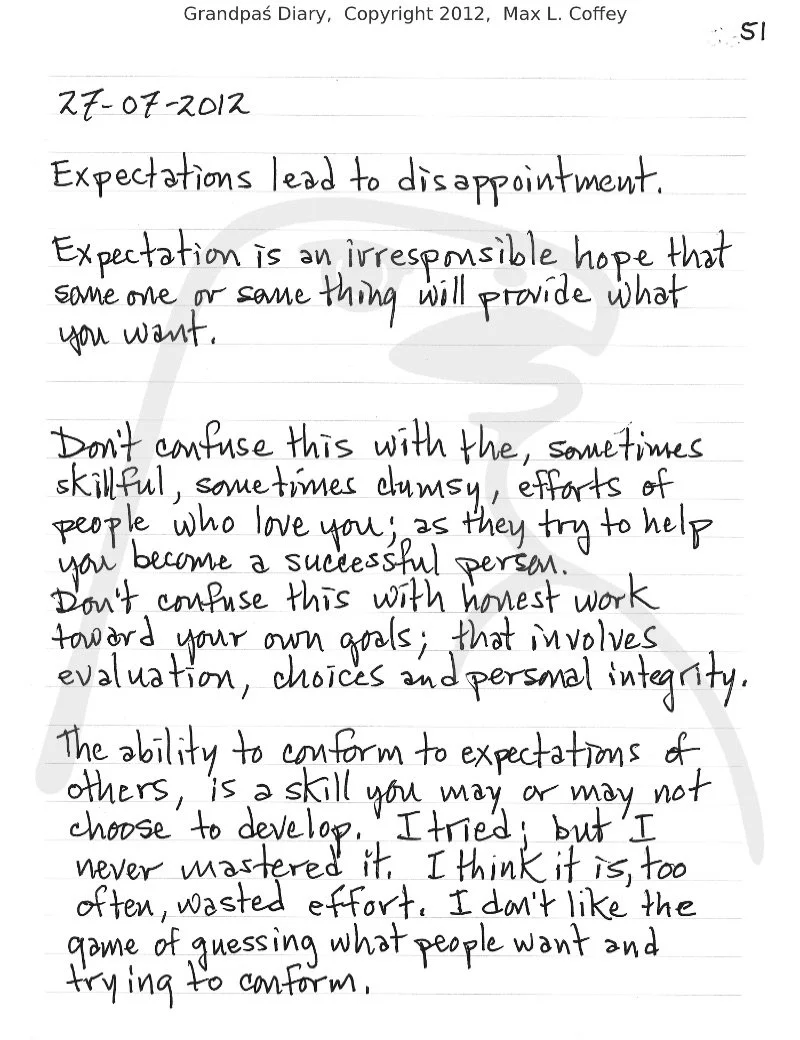 Grandpaś Diary, Copyright 2012, Max L. Coffey
51
27-07-2012
Expectations lead to disappointment.
Expectation is an irresponsible hope that
some one or some thing will provide what
you want.
Don't confuse this with the, sometimes
skillful, sometimes clumsy, efforts of
people who love you; as they try to help
you become a successful person.
Don't confuse this with honest work
toward your own goals; that involves
evaluation, choices and personal integrity.
The ability to conform to expectations of
others, is a skill you may or may not
choose to develop. I tried; but I
never mastered it. I think it is, too
often, wasted effort. I don't like the
game of guessing what people want and
trying to conform.